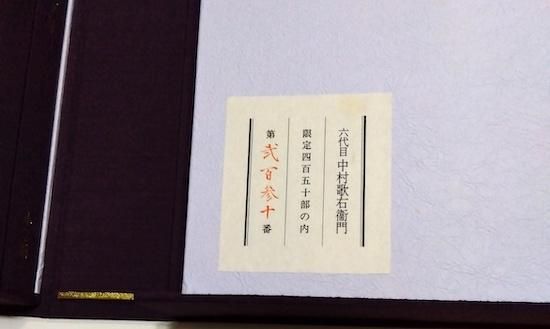 六代目 中村歌右衞門
限定四百五十部の内
第弐百参十番